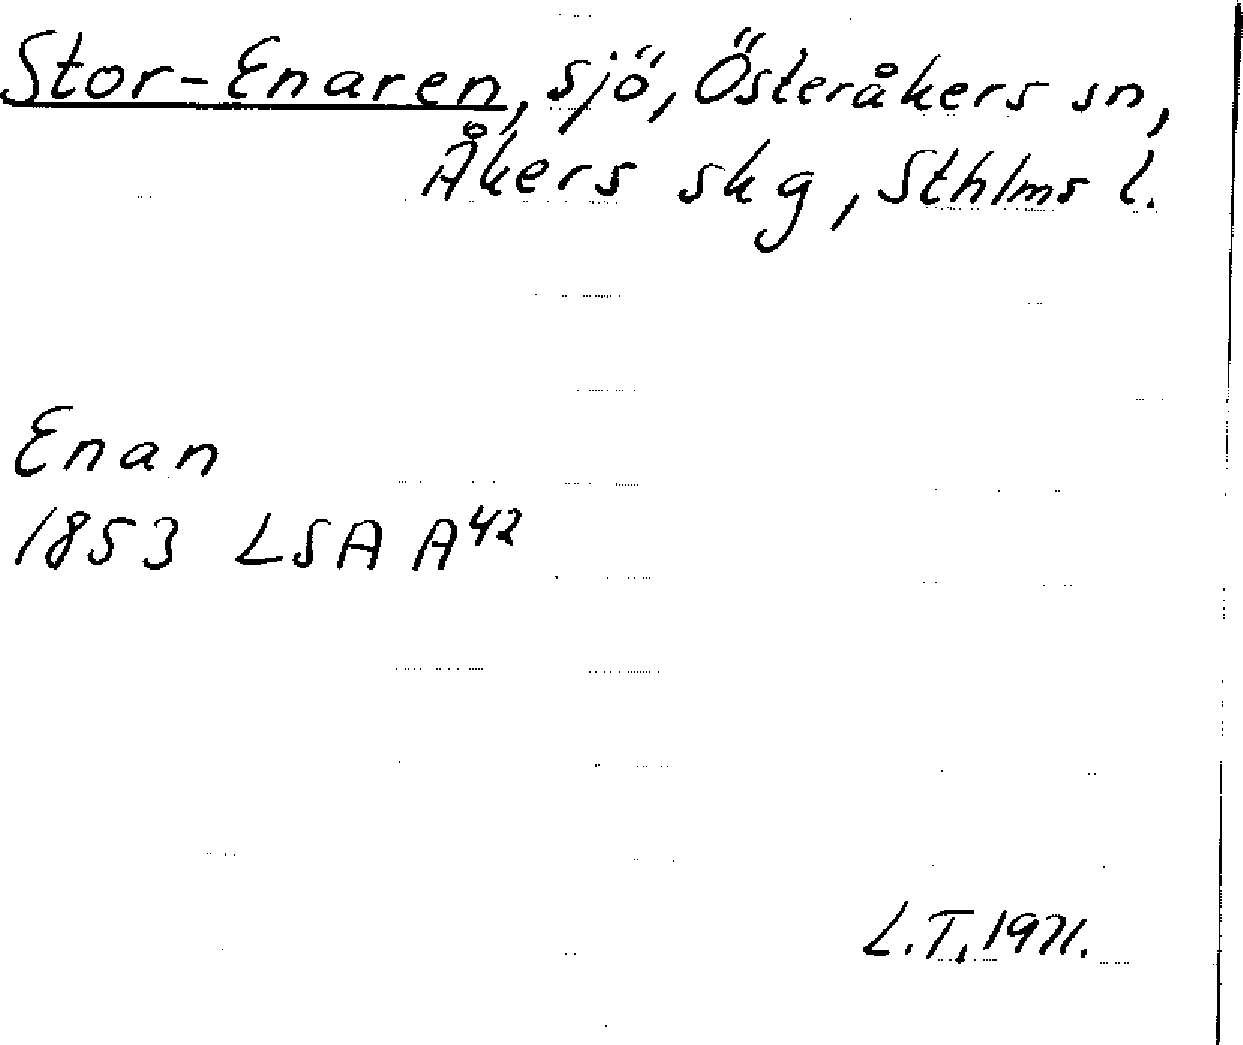 Stor-Enaren, sjö, Österåkers sn,
Åkers skg, Sthlms l.
Enan
1853 LSA A42
L.T. 1971.